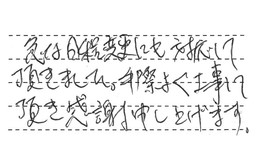 急な日程変更にも対応して
頂きました。手際よく工事して
頂き感謝申し上げます。